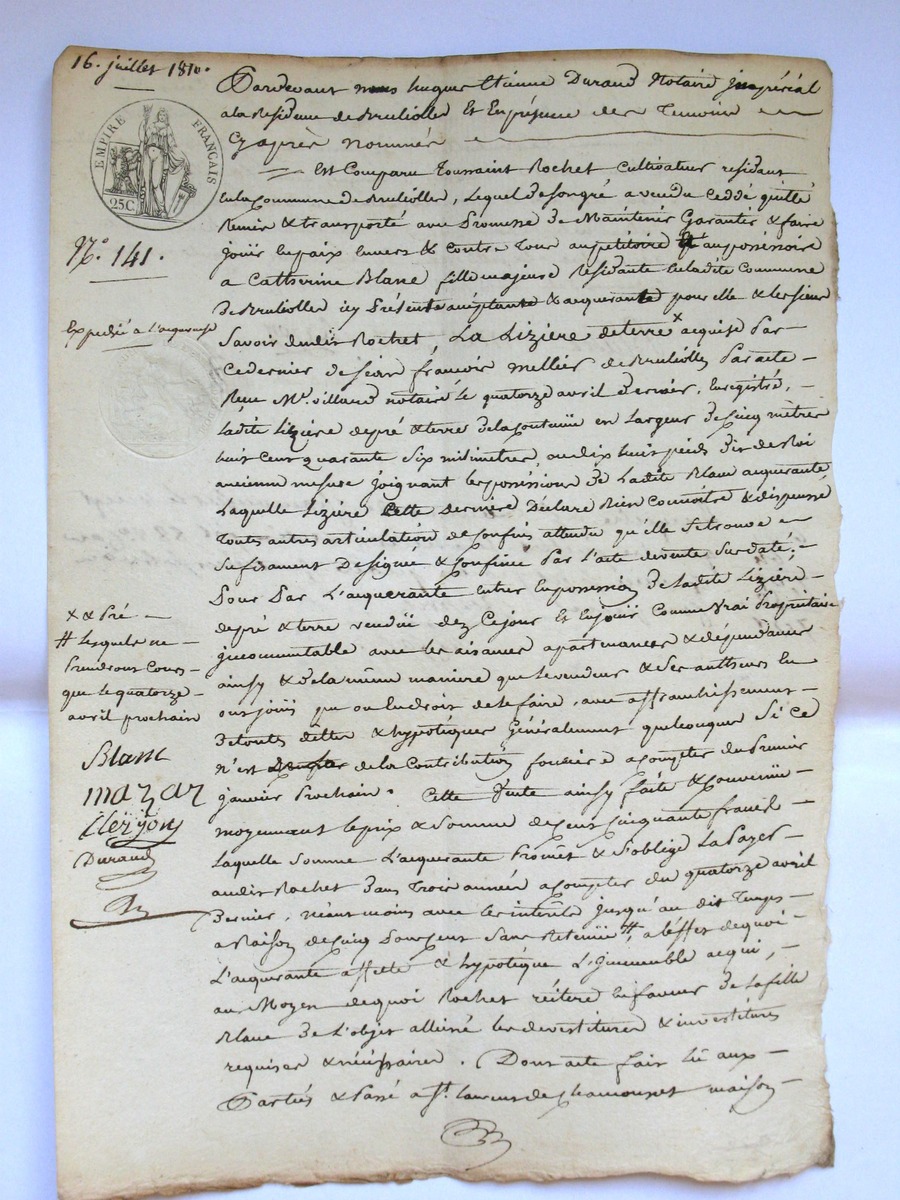 16. juillet 1810.
Pardevant nous hugues Etienne Durand Notaire jmpérial
a la Residence de Brulioles Et En présence des Temoins
Cyaprès nommés
EMPIRE FRANÇAIS
25C.
Est Comparu Toussaint Rochet Cultivateur résidant
en la Commune de Brulioles, Lequel de son gré a vendu Ceddé quitté
Remis & transporté avec Promesse de Maintenir Garantir & faire
jouir En paix Envers & Contre Tous au pétitoire & au possessoire
N.° 141.
a Catherine Blanc fille majeure Résidante En ladite Commune
de Brulioles icy Présente acceptante & acquerante pour elle & les siens
Expedié à l'acquereuse
Savoir dudit Rochet, La Liziere de terre x acquise Par
Ce dernier de jean françois Mellier de Brulioles Par acte
Reçu M.e villand notaire Le quatorze avril dernier, Enregistré,
Ladite Liziere de pré & terre de la Contenüe en Largeur de Cinq mètres
huit Cent quarante Six milimètres, ou dix huit pieds dit de Roi
ancienne mesure joignant les possessions de Ladite Blanc acquerante
Laquelle Liziere Cette derniere Déclare Bien Connoitre & dispense
Toutes autres articulations de Confins attendu qu'elle Se trouve
Sufisament Designée & Confinée Par l'acte de vente Sus daté;
Pour Par L'acquerante Entrer En possession de Ladite Liziere
x & Pré
de pré & terre vendüe dez Ce jour Et En jouir Comme vrai Propriétaire
# Lesquels ne
jncommutable avec les aisances apartenances & dépendances
Prendront Cours
ainsy & de la même maniere que le vendeur & Ses autheurs En
que le quatorze
ont joüi que ou En droit de le faire, avec affranchissement
avril prochain
de toutes dettes & hypotèques Généralement quelconques Si Ce
Blanc
n'est de la Contribution fonciere a compter du Premier
mazar
janvier Prochain. Cette Vente ainsy faite & Convenüe
Clerjon
moyennant le prix & Somme de Cent Cinquante francs
Durand
Laquelle Somme L'acquerante Promet & S'oblige La Payer
audit Rochet dans Trois années a compter du quatorze avril
Dernier, néanmoins avec les intérêts jusqu'au dit Temps
a Raison de Cinq Pour Cent Sans Retenüe #, a l'effet de quoi
L'acquerante affecte & hypotèque L'jmmeuble acqui,
au Moyen de quoi Rochet réitere En faveur de La fille
Blanc de L'objet alliéné les devestitures & investitures
requises & nécessaires. Dont acte fait Lû aux
Parties & Passé a St. Laurent de Chamousset maison